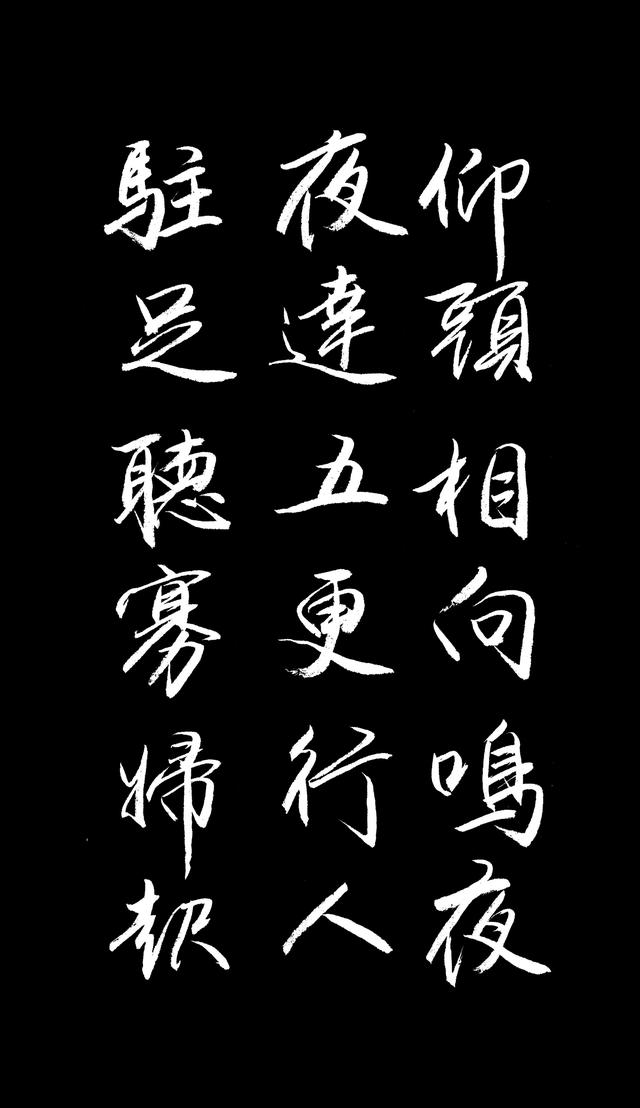 仰頭相向鳴夜
夜達五更行人
駐足聽寡婦起